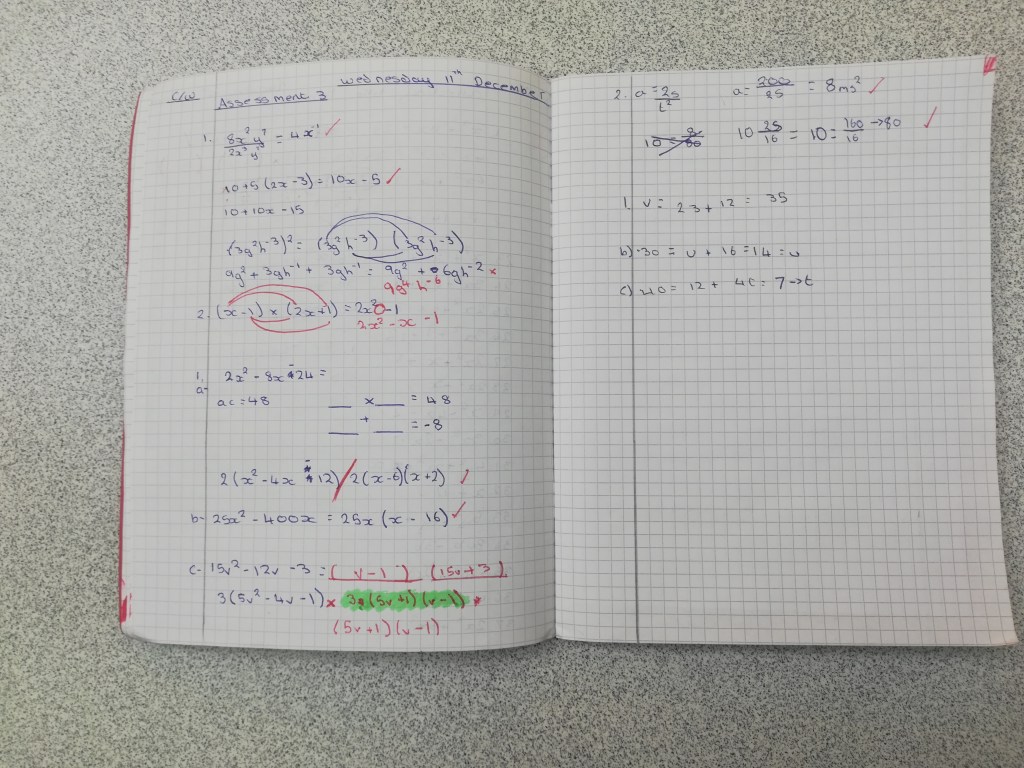 Wednesday 11th December
C/W Assessment 3
1. 8x²y⁷ / 2x³y⁷ = 4x⁻¹ ✓
10+5(2x-3) = 10x - 5 ✓
10+10x-15
(3g²h⁻³)² = (3g²h⁻³) (3g²h⁻³)
9g² + 3gh⁻¹ + 3gh⁻¹ = 9g² + 6gh⁻² ×
9g⁴h⁻⁶
2. (x-1) × (2x+1) = 2x² -1
2x² - x - 1
1.
a- 2x² - 8x - 24 =
ac = 48 __ × __ = 48
__ + __ = -8
2(x² - 4x - 12) / 2(x-6)(x+2) ✓
b- 25x² - 400x = 25x(x - 16) ✓
c- 15v² - 12v - 3 = (v-1) (15v+3)
3(5v² - 4v - 1) × 3(5v+1)(v-1)
(5v+1)(v-1)
2. a = 2s / t² a = 200 / 25 = 8ms² ✓
10 25/16 = 10 = 160/16 → 80 ✓
1. v = 23 + 12 = 35
b) 30 = u + 16 = 14 = u
c) 40 = 12 + 4t = 7 → t